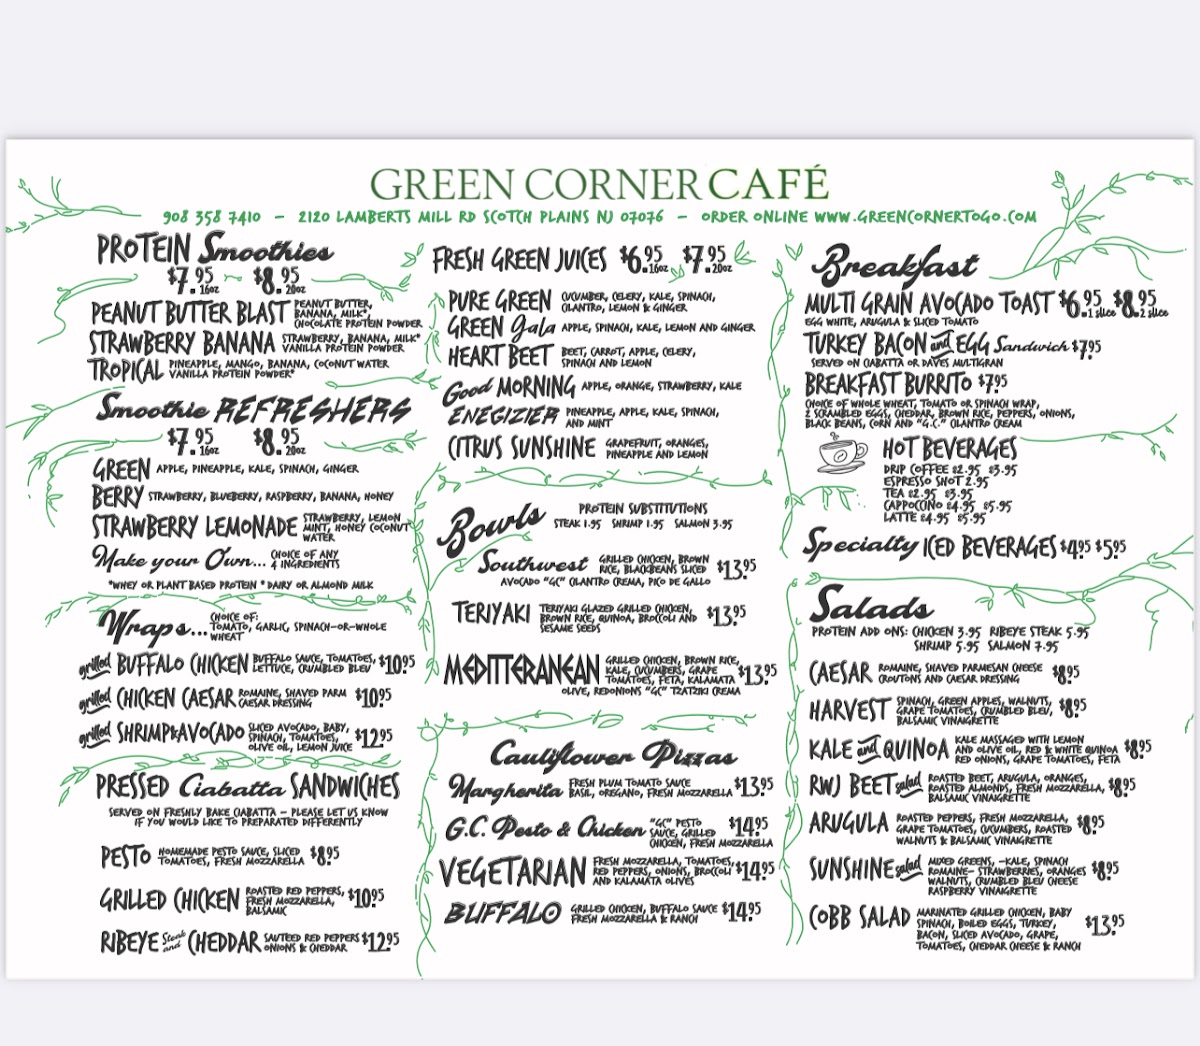 GREEN CORNER CAFÉ
908 358 7410 – 2120 LAMBERTS MILL RD SCOTCH PLAINS NJ 07076 – ORDER ONLINE WWW.GREENCORNERTOGO.COM
PROTEIN Smoothies
$7.95 16oz $8.95 20oz
PEANUT BUTTER BLAST PEANUT BUTTER,
BANANA, MILK*,
CHOCOLATE PROTEIN POWDER
STRAWBERRY BANANA STRAWBERRY, BANANA, MILK*
VANILLA PROTEIN POWDER*
TROPICAL PINEAPPLE, MANGO, BANANA, COCONUT WATER
VANILLA PROTEIN POWDER*
Smoothie REFRESHERS
$7.95 16oz $8.95 20oz
GREEN APPLE, PINEAPPLE, KALE, SPINACH, GINGER
BERRY STRAWBERRY, BLUEBERRY, RASPBERRY, BANANA, HONEY
STRAWBERRY LEMONADE STRAWBERRY, LEMON
MINT, HONEY COCONUT
WATER
Make your Own... CHOICE OF ANY
4 INGREDIENTS
*WHEY OR PLANT BASED PROTEIN *DAIRY OR ALMOND MILK
Wraps... CHOICE OF:
TOMATO, GARLIC, SPINACH-OR-WHOLE
WHEAT
grilled BUFFALO CHICKEN BUFFALO SAUCE, TOMATOES, $10.95
LETTUCE, CRUMBLED BLEU
grilled CHICKEN CAESAR ROMAINE, SHAVED PARM $10.95
CAESAR DRESSING
grilled SHRIMP&AVOCADO SLICED AVOCADO, BABY, $12.95
SPINACH, TOMATOES,
OLIVE OIL, LEMON JUICE
PRESSED Ciabatta SANDWICHES
SERVED ON FRESHLY BAKE CIABATTA – PLEASE LET US KNOW
IF YOU WOULD LIKE TO PREPARATED DIFFERENTLY
PESTO HOMEMADE PESTO SAUCE, SLICED $8.95
TOMATOES, FRESH MOZZARELLA
GRILLED CHICKEN ROASTED RED PEPPERS, $10.95
FRESH MOZZARELLA,
BALSAMIC
RIBEYE Steak and CHEDDAR SAUTEED RED PEPPERS $12.95
ONIONS & CHEDDAR
FRESH GREEN JUICES $6.95 16oz $7.95 20oz
PURE GREEN CUCUMBER, CELERY, KALE, SPINACH,
CILANTRO, LEMON & GINGER
GREEN Gala APPLE, SPINACH, KALE, LEMON AND GINGER
HEART BEET BEET, CARROT, APPLE, CELERY,
SPINACH AND LEMON
Good MORNING APPLE, ORANGE, STRAWBERRY, KALE
ENEGIZIER PINEAPPLE, APPLE, KALE, SPINACH,
AND MINT
CITRUS SUNSHINE GRAPEFRUIT, ORANGES,
PINEAPPLE AND LEMON
Bowls PROTEIN SUBSTITUTIONS
STEAK 1.95 SHRIMP 1.95 SALMON 3.95
Southwest GRILLED CHICKEN, BROWN $13.95
RICE, BLACKBEANS SLICED
AVOCADO "GC" CILANTRO CREMA, PICO DE GALLO
TERIYAKI TERIYAKI GLAZED GRILLED CHICKEN, $13.95
BROWN RICE, QUINOA, BROCCOLI AND
SESAME SEEDS
MEDITTERANEAN GRILLED CHICKEN, BROWN RICE, $13.95
KALE, CUCUMBERS, GRAPE
TOMATOES, FETA, KALAMATA
OLIVE, REDONIONS "GC" TZATZIKI CREMA
Cauliflower Pizzas
Margherita FRESH PLUM TOMATO SAUCE $13.95
BASIL, OREGANO, FRESH MOZZARELLA
G.C. Pesto & Chicken "GC" PESTO $14.95
SAUCE, GRILLED
CHICKEN, FRESH MOZZARELLA
VEGETARIAN FRESH MOZZARELLA, TOMATOES, $14.95
RED PEPPERS, ONIONS, BROCCOLI
AND KALAMATA OLIVES
BUFFALO GRILLED CHICKEN, BUFFALO SAUCE $14.95
FRESH MOZZARELLA & RANCH
Breakfast
MULTI GRAIN AVOCADO TOAST $6.95 1 slice $8.95 2 slice
EGG WHITE, ARUGULA & SLICED TOMATO
TURKEY BACON and EGG Sandwich $7.95
SERVED ON CIABATTA OR DAVES MULTIGRAN
BREAKFAST BURRITO $7.95
CHOICE OF WHOLE WHEAT, TOMATO OR SPINACH WRAP,
2 SCRAMBLED EGGS, CHEDDAR, BROWN RICE, PEPPERS, ONIONS,
BLACK BEANS, CORN AND "G.C." CILANTRO CREAM
HOT BEVERAGES
DRIP COFFEE $2.95 $3.95
ESPRESSO SHOT 2.95
TEA $2.95 $3.95
CAPPOCCINO $4.95 $5.95
LATTE $4.95 $5.95
Specialty ICED BEVERAGES $4.95 $5.95
Salads
PROTEIN ADD ONS: CHICKEN 3.95 RIBEYE STEAK 5.95
SHRIMP 5.95 SALMON 7.95
CAESAR ROMAINE, SHAVED PARMESAN CHEESE $8.95
CROUTONS AND CAESAR DRESSING
HARVEST SPINACH, GREEN APPLES, WALNUTS, $8.95
GRAPE TOMATOES, CRUMBLED BLEU,
BALSAMIC VINAIGRETTE
KALE and QUINOA KALE MASSAGED WITH LEMON $8.95
AND OLIVE OIL, RED & WHITE QUINOA
RED ONIONS, GRAPE TOMATOES, FETA
RWJ BEET salad ROASTED BEET, ARUGULA, ORANGES, $8.95
ROASTED ALMONDS, FRESH MOZZARELLA,
BALSAMIC VINAIGRETTE
ARUGULA ROASTED PEPPERS, FRESH MOZZARELLA, $8.95
GRAPE TOMATOES, CUCUMBERS, ROASTED
WALNUTS & BALSAMIC VINAIGRETTE
SUNSHINE salad MIXED GREENS, -KALE, SPINACH $8.95
ROMAINE- STRAWBERRIES, ORANGES
WALNUTS, CRUMBLED BLEU CHEESE
RASPBERRY VINAIGRETTE
COBB SALAD MARINATED GRILLED CHICKEN, BABY $13.95
SPINACH, BOILED EGGS, TURKEY,
BACON, SLICED AVOCADO, GRAPE,
TOMATOES, CHEDDAR CHEESE & RANCH